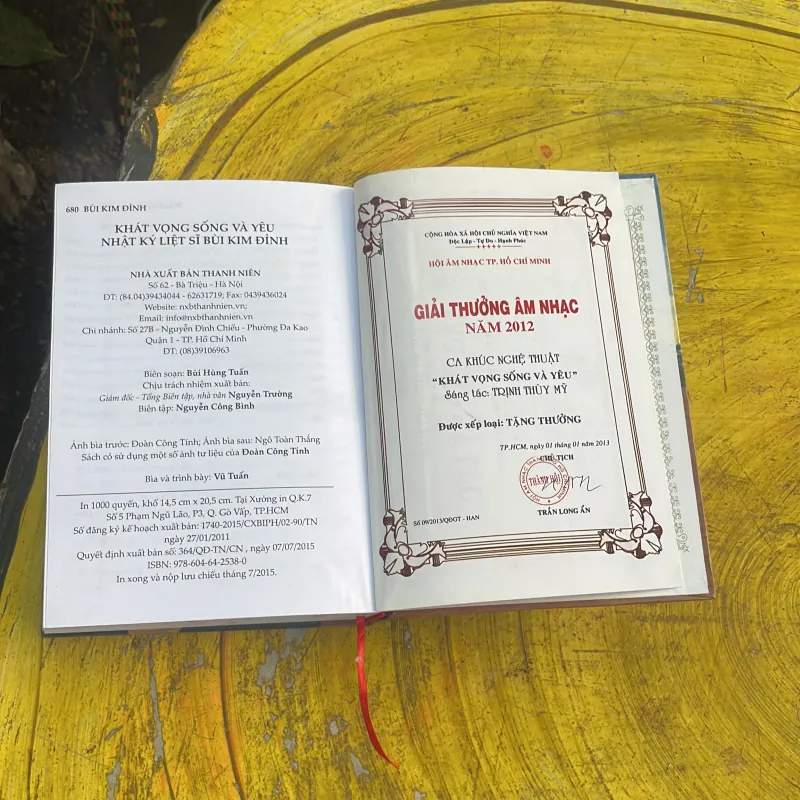 680 BÙI KIM ĐỈNH
KHÁT VỌNG SỐNG VÀ YÊU
NHẬT KÝ LIỆT SĨ BÙI KIM ĐỈNH
NHÀ XUẤT BẢN THANH NIÊN
Số 62 - Bà Triệu - Hà Nội
ĐT: (84.04)39434044 - 62631719; Fax: 0439436024
Website: nxbthanhnien.vn;
Email: info@nxbthanhnien.vn
Chi nhánh: Số 27B - Nguyễn Đình Chiểu - Phường Đa Kao
Quận 1 - TP. Hồ Chí Minh
ĐT: (08)39106963
Biên soạn: Bùi Hùng Tuấn
Chịu trách nhiệm xuất bản:
Giám đốc - Tổng Biên tập, nhà văn Nguyễn Trường
Biên tập: Nguyễn Công Bình
Ảnh bìa trước: Đoàn Công Tính; Ảnh bìa sau: Ngô Toàn Thắng
Sách có sử dụng một số ảnh tư liệu của Đoàn Công Tính
Bìa và trình bày: Vũ Tuấn
In 1000 quyển, khổ 14,5 cm x 20,5 cm. Tại Xưởng in Q.K.7
Số 5 Phạm Ngũ Lão, P3, Q. Gò Vấp, TP.HCM
Số đăng ký kế hoạch xuất bản: 1740-2015/CXBIPH/02-90/TN
ngày 27/01/2011
Quyết định xuất bản số: 364/QĐ-TN/CN , ngày 07/07/2015
ISBN: 978-604-64-2538-0
In xong và nộp lưu chiểu tháng 7/2015.
CỘNG HÒA XÃ HỘI CHỦ NGHĨA VIỆT NAM
Độc Lập - Tự Do - Hạnh Phúc
HỘI ÂM NHẠC TP. HỒ CHÍ MINH
GIẢI THƯỞNG ÂM NHẠC
NĂM 2012
CA KHÚC NGHỆ THUẬT
"KHÁT VỌNG SỐNG VÀ YÊU"
Sáng tác: TRỊNH THÙY MỸ
Được xếp loại: TẶNG THƯỞNG
TP.HCM, ngày 01 tháng 01 năm 2013
CHỦ TỊCH
THÀNH HỘI
Số 09/2013/QĐGT - HAN
TRẦN LONG ẨN